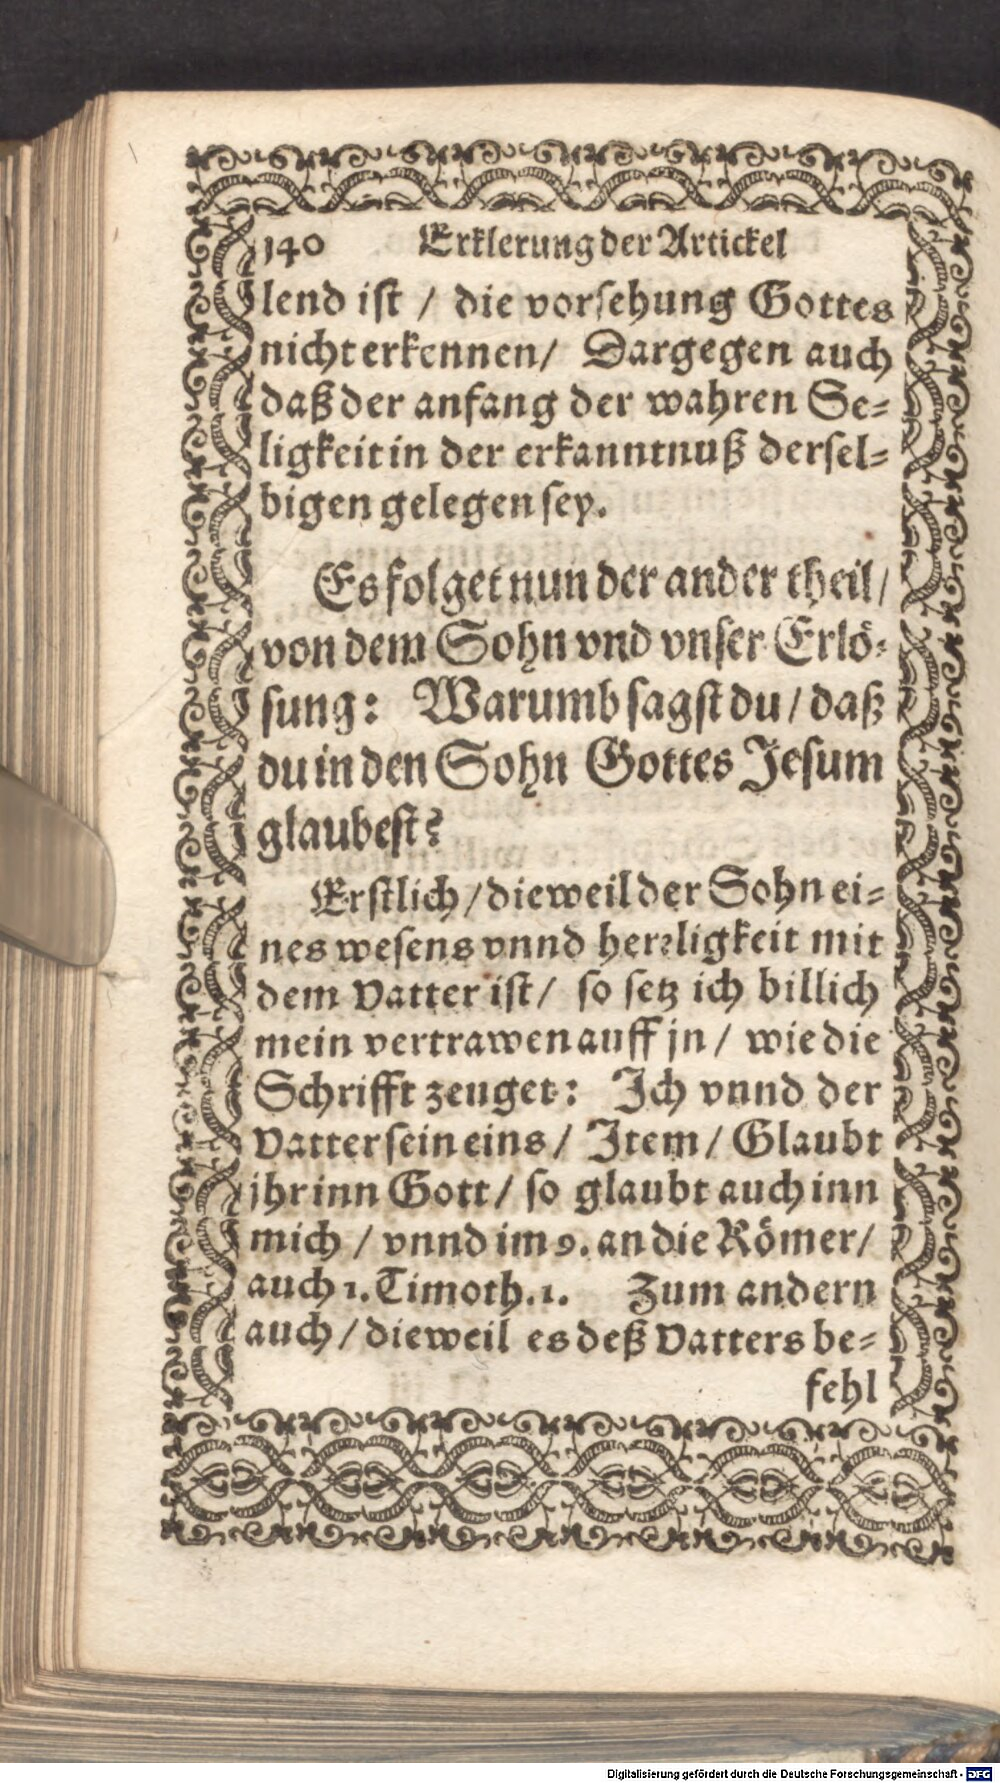 140 Erklerung der Artickel
lend ist / die vorsehung Gottes
nicht erkennen / Dargegen auch
daß der anfang der wahren Se⸗
ligkeit in der erkanntnuß dersel⸗
bigen gelegen sey.
Es folget nun der ander theil /
von dem Sohn vnd vnser Erlö⸗
sung: Warumb sagst du / daß
du in den Sohn Gottes Jesum
glaubest?
Erstlich / dieweil der Sohn ei⸗
nes wesens vnnd herꝛligkeit mit
dem Vatter ist / so setz ich billich
mein vertrawen auff jn / wie die
Schrifft zeuget: Ich vnnd der
Vatter sein eins / Item / Glaubt
jhr inn Gott / so glaubt auch inn
mich / vnnd im 9. an die Römer /
auch 1. Timoth. 1. Zum andern
auch / dieweil es deß Vatters be⸗
fehl
Digitalisierung gefördert durch die Deutsche Forschungsgemeinschaft - DFG